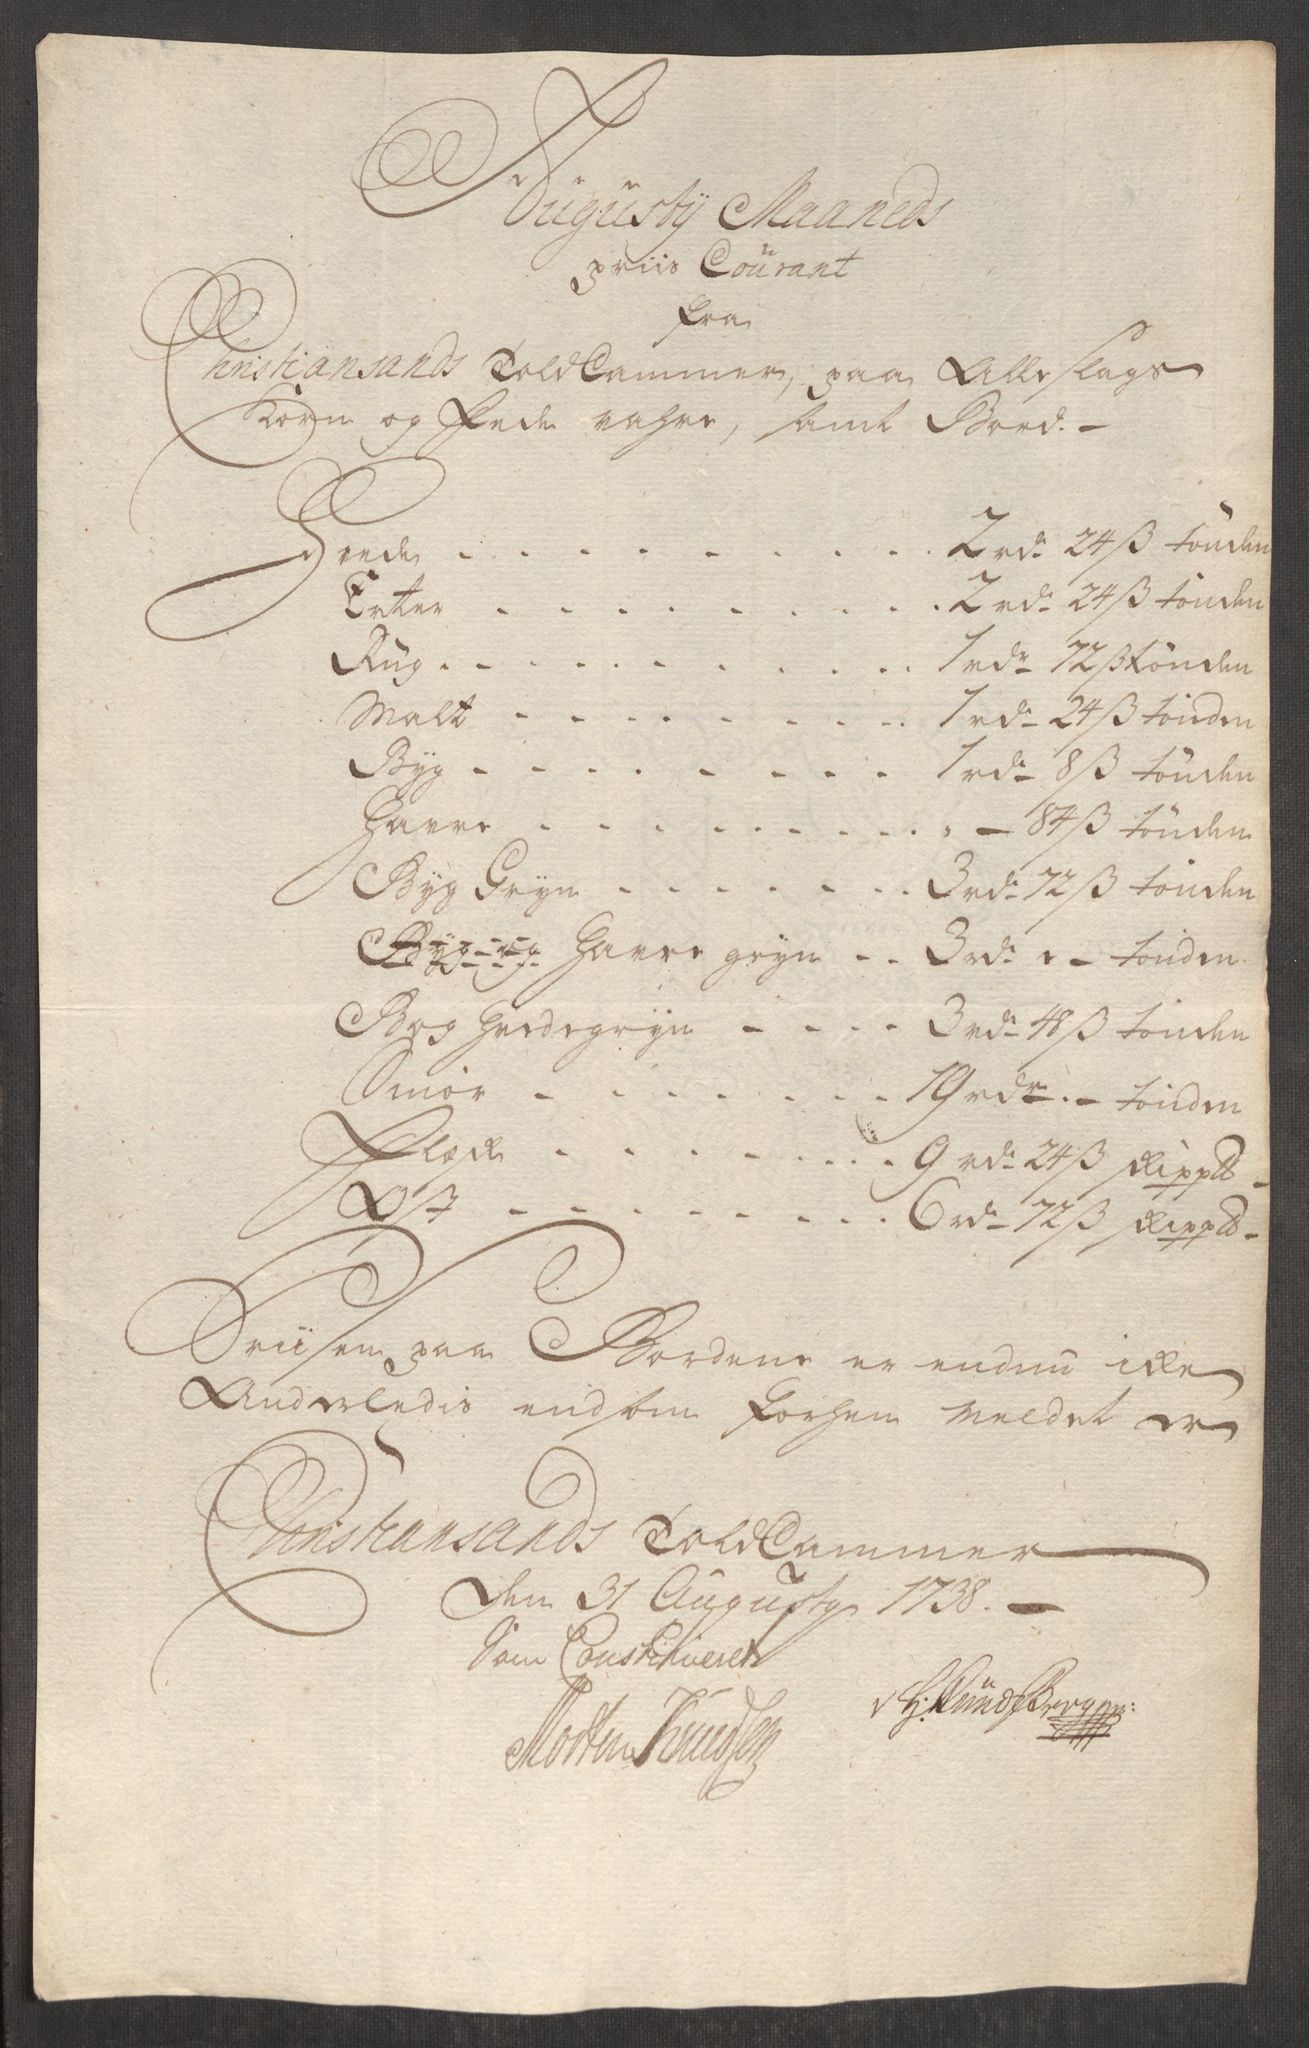 Augustij Maaneds
priis Courant
fra
Christiansands ToldCammer, paa Alle slags
Korn og fede vahre, samt Bord. -
Hvede . . . . . . . . . . 2 rdr 24 ß tönden
Erter . . . . . . . . . . 2 rdr 24 ß tönden
Rüg . . . . . . . . . . 1 rdr 72 ß tönden
Malt . . . . . . . . . 1 rdr 24 ß tönden
Byg . . . . . . . . . 1 rdr 8 ß tönden
Havre . . . . . . . . . . - 84 ß tönden
Byg Gryn . . . . . . . 3 rdr 72 ß tönden
Byg og Havre gryn . . 3 rdr - tönden
Boghvedegryn . . . . 3 rdr 48 ß tönden
Smör . . . . . . . . 19 rdr . - tönden
Flæsk . . . . . . . . . 9 rdr 24 ß skippd
Ost . . . . . . . . . 6 rdr 72 ß skippd
Priisen paa Bordene er endnu icke
Anderledis end som forhen meldet er
Christiansands ToldCammer
den 31 Augusty 1738. -
Som Constitueret
Morten Knudsen